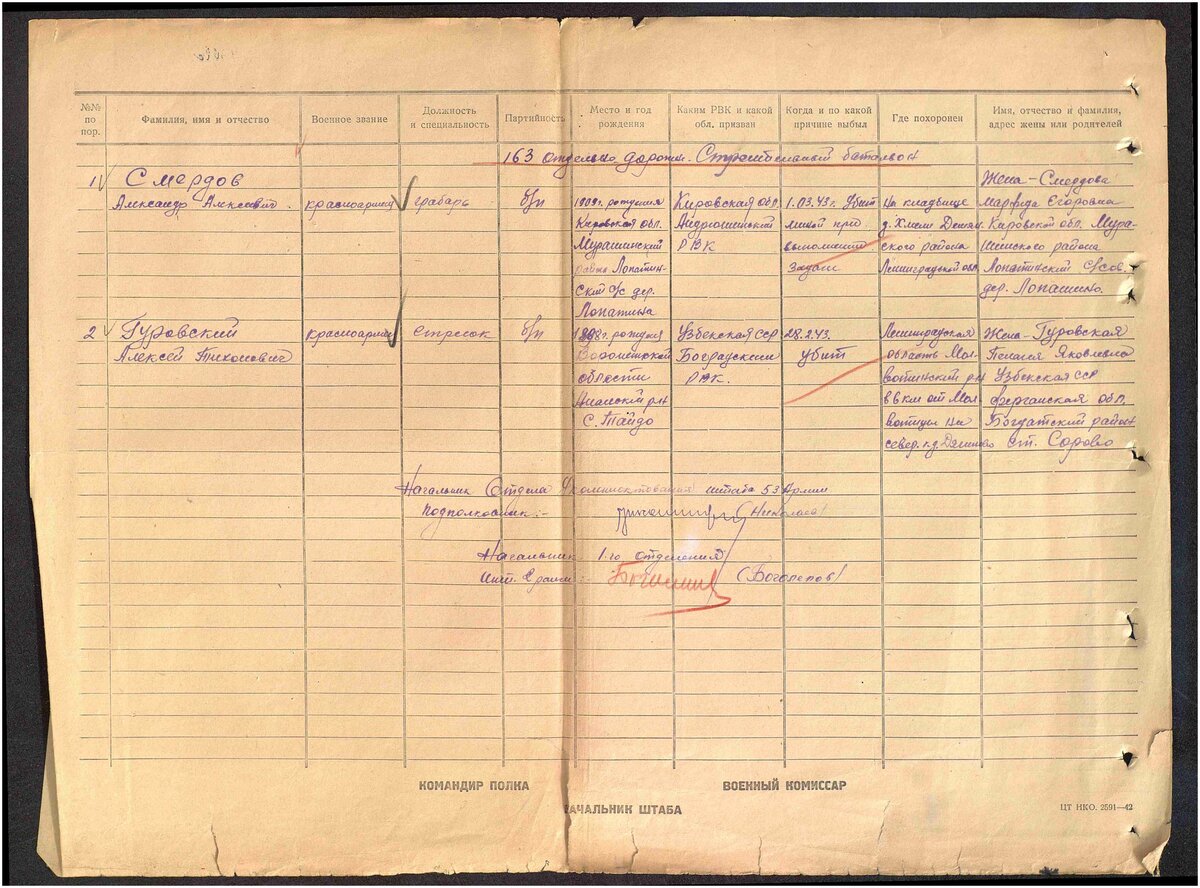 №№ по пор.
Фамилия, имя и отчество
Военное звание
Должность и специальность
Партийность
Место и год рождения
Каким РВК и какой обл. призван
Когда и по какой причине выбыл
Где похоронен
Имя, отчество и фамилия, адрес жены или родителей
163 отдельно дорожн. Строительный батальон
1
Смердов
Александр Алексеевич
красноармеец
грабарь
б/п
1909г. рождения
Кировская обл.
Мурашинский
района Лопатин-
ский с/с дер.
Лопатина
Кировская обл.
РВК
1.03.43г. Убит
миной при
выполнении
задач
на кладбище
д. Хмели Демян-
ского района
Ленинградской обл.
Жена-Смердова
Марфида Егоровна
Кировской обл. Мура-
шинского района
Лопатинский с/сов.
дер. Лопатино.
2
Гуровский
Алексей Тихонович
красноармеец
стрелок
б/п
1898г. рождения
Воронежской
области
Аннский р-н
с. Тайдо
Узбекская ССР
Богдадский
РВК.
28.2.43.
убит
Ленинградская
область Мол-
вотицкий р-н
в 6 км от Мол-
вотицы на
север. п.д.
Жена-Гуровская
Пелагия Яковлевна
Узбекская ССР
Ферганская обл.
Богдатский район
ст. Сорово
Начальник Отдела Укомплектования штаба 53 Армии
Подполковник:-
(Николаев)
Начальник 1-го отделения
Инт. 2 ранга:-
(Боголепов)
КОМАНДИР ПОЛКА
ВОЕННЫЙ КОМИССАР
НАЧАЛЬНИК ШТАБА
ЦТ НКО. 2591—42